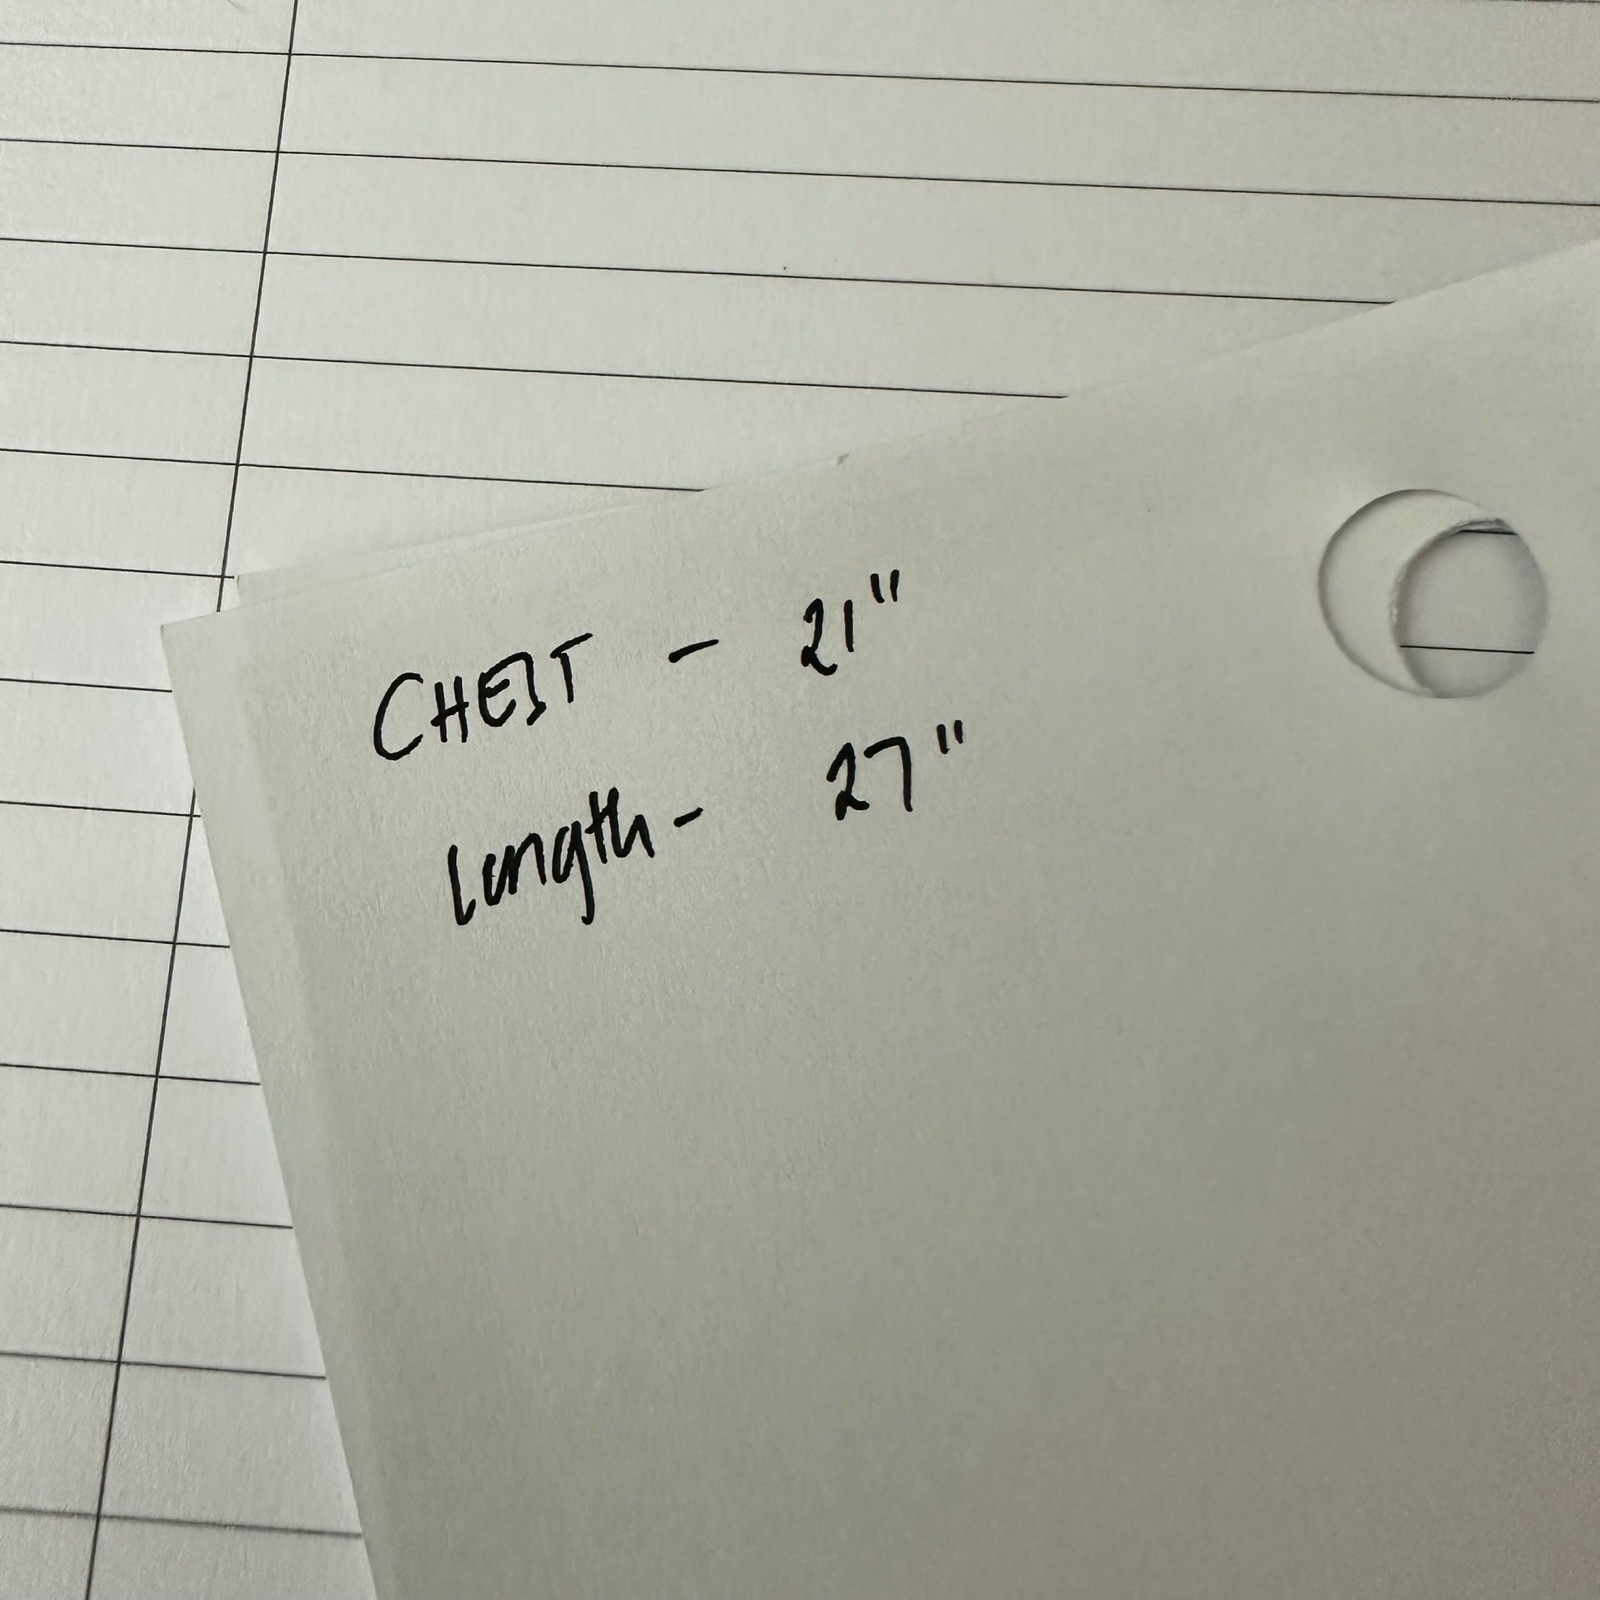 CHEST - 21"
length - 27"